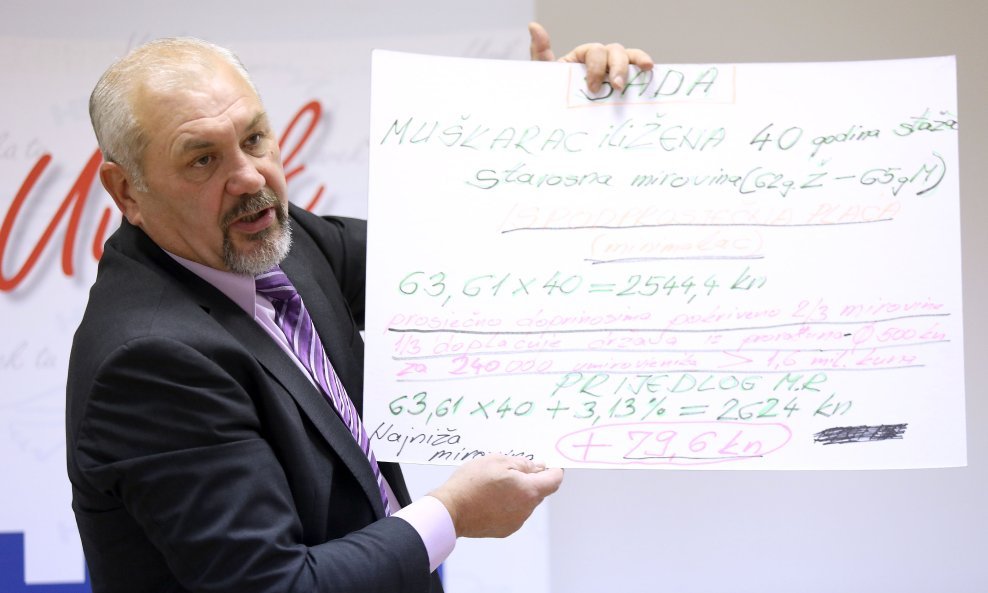 SADA
MUŠKARAC ili ŽENA 40 godina staža
starosna mirovina (62g Ž - 65g M)
ISPODPROSJEČNA PLAĆA
(minimalac)
63,61 x 40 = 2544,4 kn
prosječno doprinosima pokriveno 2/3 mirovine
1/3 doplaćuje država iz proračuna - Ø 500 kn
za 240 000 umirovljenika > 1,6 mil. kuna
PRIJEDLOG M.R.
63,61 x 40 + 3,13% = 2624 kn
+ 79,6 kn
Najniža
mirovina